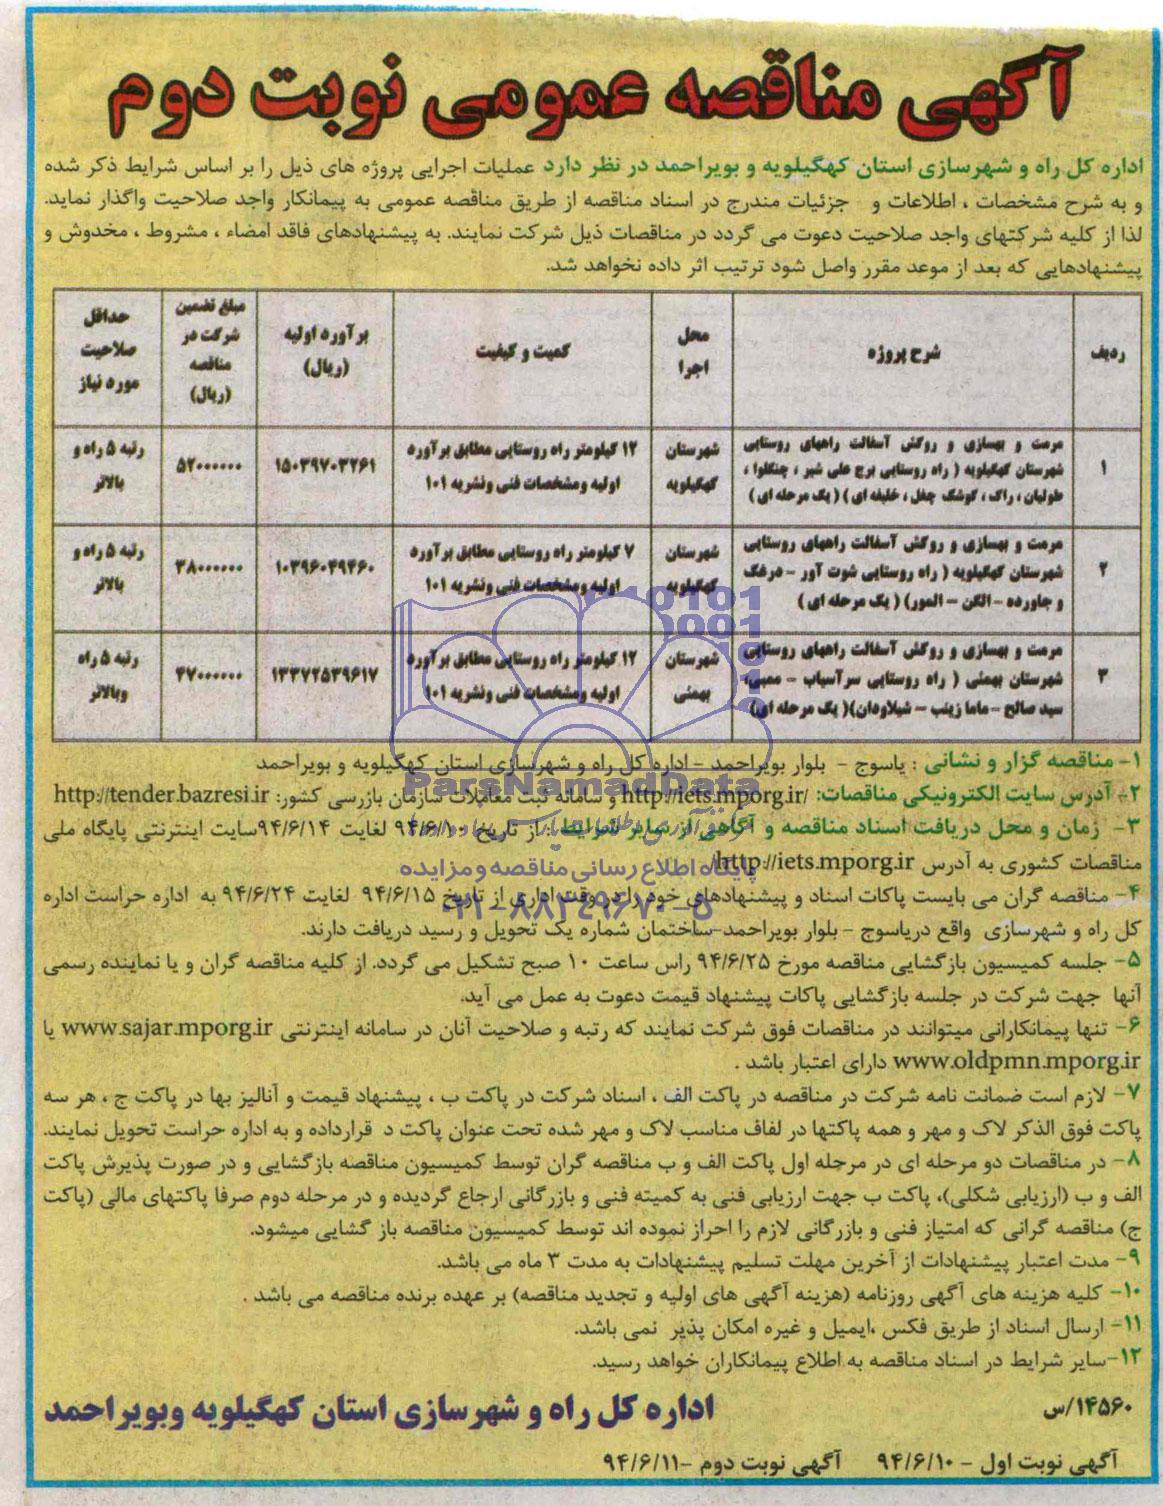 آگهی مناقصه عمومی نوبت دوم
اداره کل راه و شهرسازی استان کهگیلویه و بویراحمد در نظر دارد عملیات اجرایی پروژه های ذیل را بر اساس شرایط ذکر شده
و به شرح مشخصات ، اطلاعات و جزئیات مندرج در اسناد مناقصه از طریق مناقصه عمومی به پیمانکار واجد صلاحیت واگذار نماید.
لذا از کلیه شرکتهای واجد صلاحیت دعوت می گردد در مناقصات ذیل شرکت نمایند. به پیشنهادهای فاقد امضاء ، مشروط ، مخدوش و
پیشنهادهایی که بعد از موعد مقرر واصل شود ترتیب اثر داده نخواهد شد.
ردیف
شرح پروژه
محل
اجرا
کمیت و کیفیت
برآورد اولیه
(ریال)
مبلغ تضمین
شرکت در
مناقصه
(ریال)
حداقل
صلاحیت
مورد نیاز
۱
مرمت و بهسازی و روکش آسفالت راههای روستایی
شهرستان کهگیلویه ( راه روستایی برج علی شیر ، جنگلوا ،
طولیان ، راک ، کوشک چغل ، خلیفه ای ) ( یک مرحله ای )
شهرستان
کهگیلویه
۱۲ کیلومتر راه روستایی مطابق برآورد
اولیه ومشخصات فنی ونشریه ۱۰۱
۱۵۰۳۹۷۰۳۲۶۱
۵۲۰۰۰۰۰۰۰
رتبه ۵ راه و
بالاتر
۲
مرمت و بهسازی و روکش آسفالت راههای روستایی
شهرستان کهگیلویه ( راه روستایی شوت آور - درغک
و جاورده - الکن - المور) ( یک مرحله ای )
شهرستان
کهگیلویه
۷ کیلومتر راه روستایی مطابق برآورد
اولیه ومشخصات فنی ونشریه ۱۰۱
۱۰۳۹۶۰۴۹۴۶۰
۳۸۰۰۰۰۰۰۰
رتبه ۵ راه و
بالاتر
۳
مرمت و بهسازی و روکش آسفالت راههای روستایی
شهرستان بهمئی ( راه روستایی سرآسیاب - ممبی،
سید صالح - ماما زینب - شیلاودان)( یک مرحله ای)
شهرستان
بهمئی
۱۲ کیلومتر راه روستایی مطابق برآورد
اولیه ومشخصات فنی ونشریه ۱۰۱
۱۳۳۷۲۵۳۹۶۱۷
۴۷۰۰۰۰۰۰۰
رتبه ۵ راه
وبالاتر
۱- مناقصه گزار و نشانی : یاسوج - بلوار بویراحمد - اداره کل راه و شهرسازی استان کهگیلویه و بویراحمد
ParsNamadData
۲- آدرس سایت الکترونیکی مناقصات: http://iets.mporg.ir/ و سامانه ثبت معاملات سازمان بازرسی کشور: http://tender.bazresi.ir
۳- زمان و محل دریافت اسناد مناقصه و آگاهی از سایر شرایط : از تاریخ ۹۴/۶/۱۰ لغایت ۹۴/۶/۱۴سایت اینترنتی پایگاه ملی
مناقصات کشوری به آدرس http://iets.mporg.ir/
پایگاه اطلاع رسانی مناقصه و مزایده
۴- مناقصه گران می بایست پاکات اسناد و پیشنهادهای خود را در وقت اداری از تاریخ ۹۴/۶/۱۵ لغایت ۹۴/۶/۲۴ به اداره حراست اداره
۰۲۱-۸۸۳۴۹۶۷۰-۵
کل راه و شهرسازی واقع دریاسوج - بلوار بویراحمد-ساختمان شماره یک تحویل و رسید دریافت دارند.
۵- جلسه کمیسیون بازگشایی مناقصه مورخ ۹۴/۶/۲۵ راس ساعت ۱۰ صبح تشکیل می گردد. از کلیه مناقصه گران و یا نماینده رسمی
آنها جهت شرکت در جلسه بازگشایی پاکات پیشنهاد قیمت دعوت به عمل می آید.
۶- تنها پیمانکارانی میتوانند در مناقصات فوق شرکت نمایند که رتبه و صلاحیت آنان در سامانه اینترنتی www.sajar.mporg.ir یا
www.oldpmn.mporg.ir دارای اعتبار باشد .
۷- لازم است ضمانت نامه شرکت در مناقصه در پاکت الف ، اسناد شرکت در پاکت ب ، پیشنهاد قیمت و آنالیز بها در پاکت ج ، هر سه
پاکت فوق الذکر لاک و مهر و همه پاکتها در لفاف مناسب لاک و مهر شده تحت عنوان پاکت د قرارداده و به اداره حراست تحویل نمایند.
۸- در مناقصات دو مرحله ای در مرحله اول پاکت الف و ب مناقصه گران توسط کمیسیون مناقصه بازگشایی و در صورت پذیرش پاکت
الف و ب (ارزیابی شکلی)، پاکت ب جهت ارزیابی فنی به کمیته فنی و بازرگانی ارجاع گردیده و در مرحله دوم صرفا پاکتهای مالی (پاکت
ج) مناقصه گرانی که امتیاز فنی و بازرگانی لازم را احراز نموده اند توسط کمیسیون مناقصه باز گشایی میشود.
۹- مدت اعتبار پیشنهادات از آخرین مهلت تسلیم پیشنهادات به مدت ۳ ماه می باشد.
۱۰- کلیه هزینه های آگهی روزنامه (هزینه آگهی های اولیه و تجدید مناقصه) بر عهده برنده مناقصه می باشد .
۱۱- ارسال اسناد از طریق فکس ،ایمیل و غیره امکان پذیر نمی باشد.
۱۲-سایر شرایط در اسناد مناقصه به اطلاع پیمانکاران خواهد رسید.
۱۴۵۶۰/س
اداره کل راه و شهرسازی استان کهگیلویه وبویراحمد
آگهی نوبت اول - ۹۴/۶/۱۰ آگهی نوبت دوم -۹۴/۶/۱۱